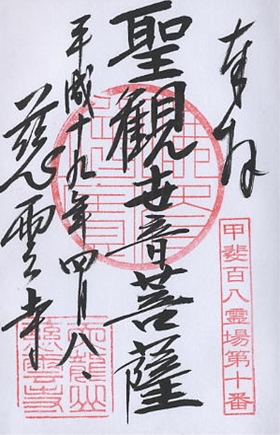 奉拝
甲斐百八霊場第十番
聖観世音菩薩
平成十九年四月八、
慈雲寺
天龍山
慈雲寺